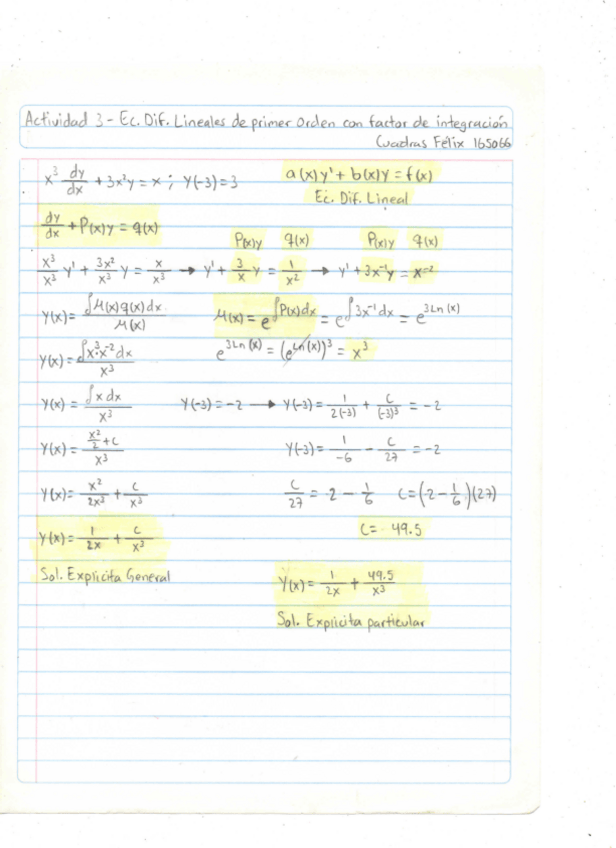 Actividad 3 - Ec. Dif. Lineales de primer orden con factor de integración
Cuadras Félix 165066
x³ dy/dx + 3x²y = x ; y(-3)=3
a(x)y' + b(x)y = f(x)
Ec. Dif. Lineal
dy/dx + P(x)y = q(x)
P(x)y q(x) P(x)y q(x)
x³/x³ y' + 3x²/x³ y = x/x³ → y' + 3/x y = 1/x² → y' + 3x⁻¹y = x⁻²
y(x) = ∫μ(x)q(x)dx / μ(x)
μ(x) = e^∫P(x)dx = e^∫3x⁻¹dx = e^3Ln(x)
y(x) = ∫x³x⁻²dx / x³
e^3Ln(x) = (e^Ln(x))³ = x³
y(x) = ∫x dx / x³
y(-3) = -2 → y(-3) = 1/2(-3) + C/(-3)³ = -2
y(x) = (x²/2 + C) / x³
y(-3) = 1/-6 - C/27 = -2
y(x) = x²/2x³ + C/x³
C/27 = 2 - 1/6 C = (2 - 1/6)(27)
y(x) = 1/2x + C/x³
C = 49.5
Sol. Explicita General
y(x) = 1/2x + 49.5/x³
Sol. Explicita particular